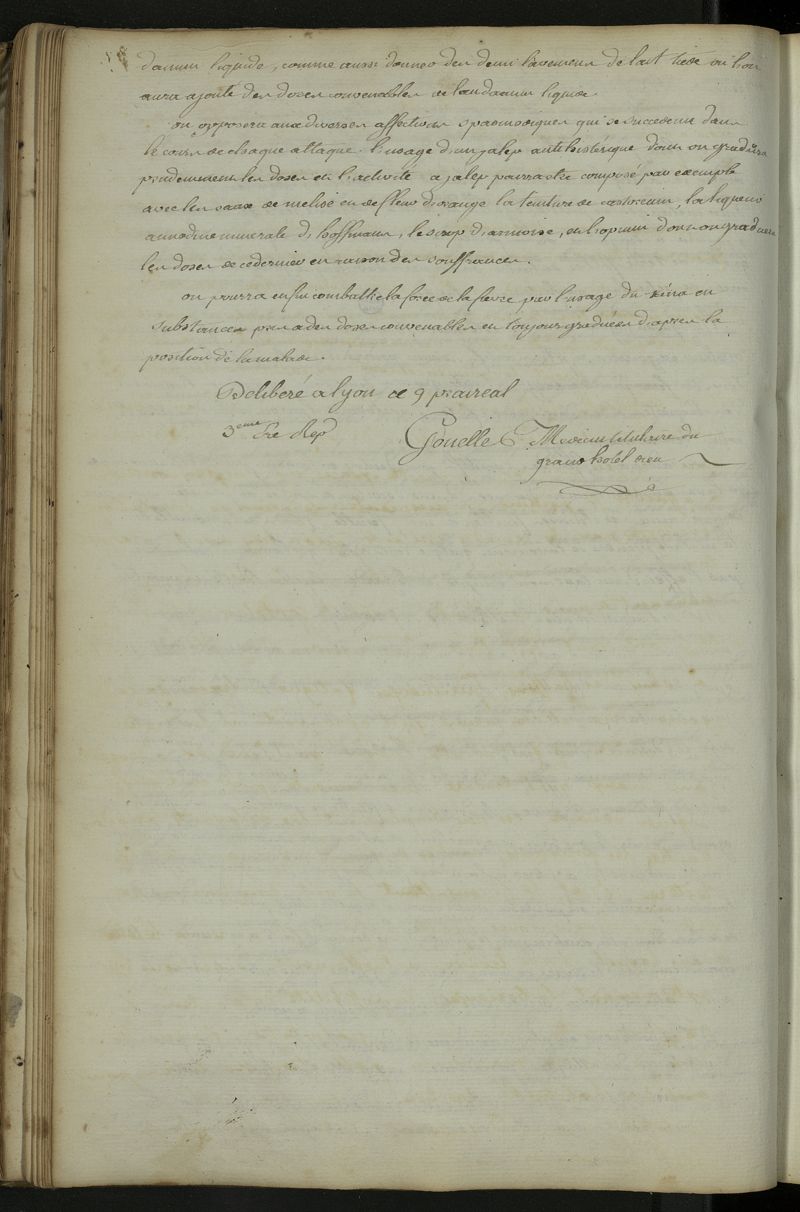 danum liquide, comme aussi donner des demi lavemens de lait tiède ou l'on
aura ajouté des doses convenables de laudanum liquide.
on opposera aux diverses affections spasmodiques qui se succedent dans
le cours de chaque attaque l'usage d'un jalep antihistérique dont on graduera
prudemment les doses et l'activité ce jalep pourra etre composé par exemple
avec les eaux de melise et de fleur d'orange la teinture de castoreum, la liqueur
annodine minerale d'hoffmann, le sirop d'armoise, et l'opium dont on graduera
les doses de ce dernier en raison des souffrances.
on pourra enfin combattre la force de la fievre par l'usage du kina en
substance pris a des doses convenables et toujours graduées d'apres la
position de la malade.
Deliberé a lyon ce 9 praireal
3eme Rep
Médecin titulaire du
grand hotel dieu